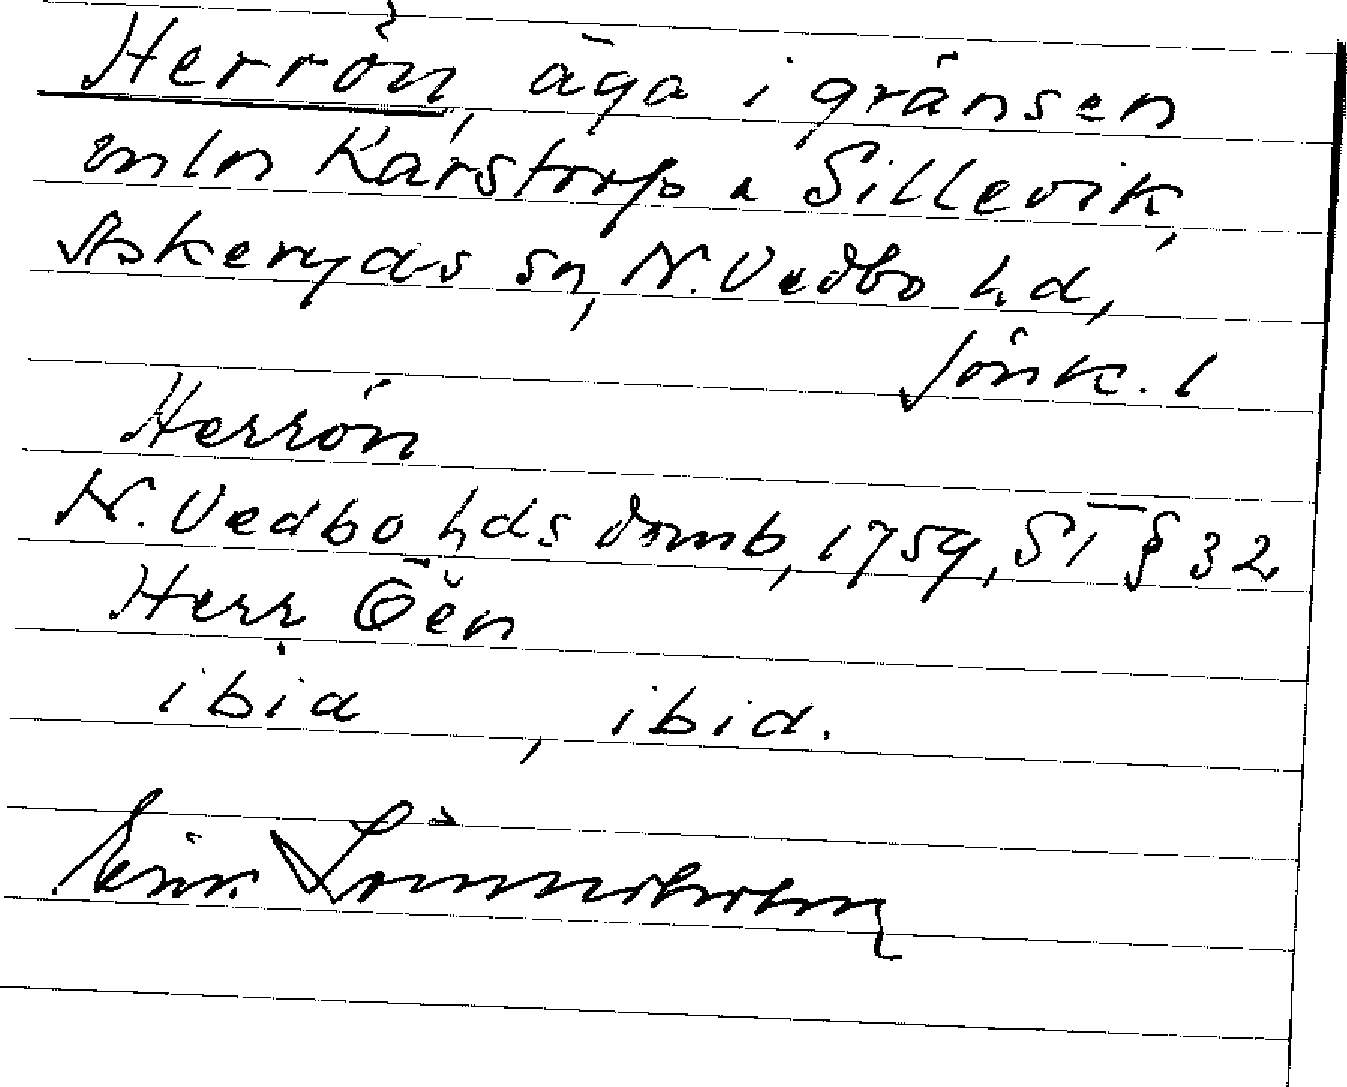 Herrön, äga i gränsen
mln Karstorp o Sillevik,
Askeryds sn, N. Vedbo hd,
Jönk. l
Herrön
N. Vedbo hds domb, 1759, ST § 32
Herr Öen
ibid, ibid.
Erik Lönnsholm